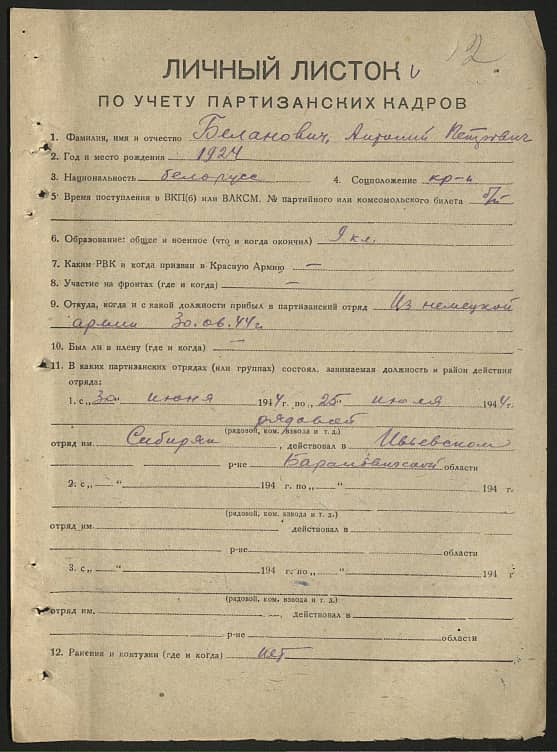 12
ЛИЧНЫЙ ЛИСТОК
ПО УЧЕТУ ПАРТИЗАНСКИХ КАДРОВ
1. Фамилия, имя и отчество Беланович, Антоний Петрович
2. Год и место рождения 1924
3. Национальность белорусс 4. Соцположение кр-н
5 Время поступления в ВКП(б) или ВЛКСМ. № партийного или комсомольского билета б/п
6. Образование: общее и военное (что и когда окончил) 9 кл.
7. Каким РВК и когда призван в Красную Армию —
8. Участие на фронтах (где и когда) —
9. Откуда, когда и с какой должности прибыл в партизанский отряд Из немецкой
армии 30.06.44 г.
10. Был ли в плену (где и когда) —
11. В каких партизанских отрядах (или группах) состоял, занимаемая должность и район действия
отряда:
1. с „30 июня 1944 г. по „25 июля 1944 г.
рядовой
(рядовой, ком. взвода и т. д.)
отряд им. Сибиряк , действовал в Ивьевском
р-не Барановичской области
2. с „—“ 194 г. по „—“ 194 г.
(рядовой, ком. взвода и т. д.)
отряд им. , действовал в
р-не области
3. с „ “ 194 г. по „ “ 194 г
(рядовой, ком. взвода и т. д.)
отряд им. , действовал в
р-не области
12. Ранения и контузии (где и когда) нет